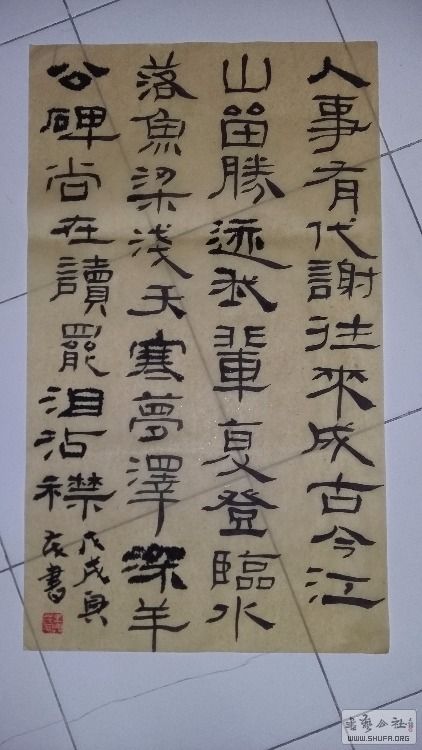 人事有代謝往來成古今江
山留勝迹我輩復登臨水
落魚梁淺天寒夢澤深羊
公碑尚在讀罷泪沾襟
戊戌寅
書
書藝公社
WWW.SHUFA.ORG